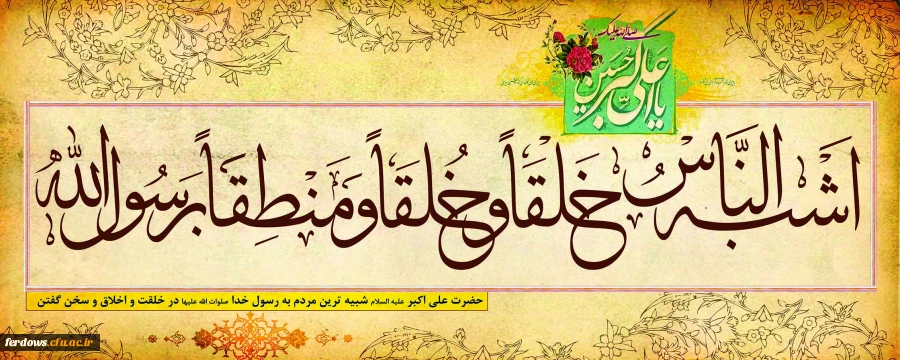 صلی الله علیک
یا علی اکبر حسین
اَشبَه النَّاسُ خَلْقَاً وَ خُلقَاً وَ مَنْطِقَاً بَرَسُولِ اللهُ
حضرت علی اکبر علیه السلام شبیه ترین مردم به رسول خدا صلوات الله علیها در خلقت و اخلاق و سخن گفتن
ferdows.cfu.ac.ir